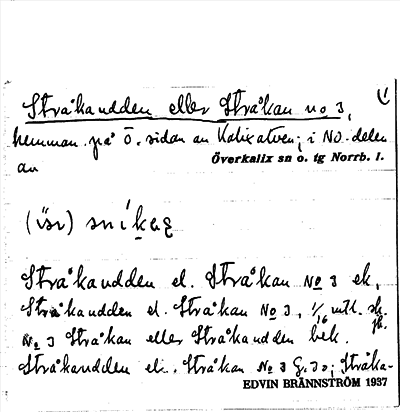 Stråkaudden eller Stråkan no 3, 1
hemman på Ö. sidan av Kalixälven, i NO. delen
Överkalix sn o. tg Norrb. l.
av
(i sr)
Stråkaudden el. Stråkan No 3 ek,
Stråkaudden el. Stråkan No 3, 1/16 mtl. sk.
No 3 Stråkan eller Stråkaudden bek.
Stråkaudden el. Stråkan No 3 G. 30; Stråka-
EDVIN BRÄNNSTRÖM 1937